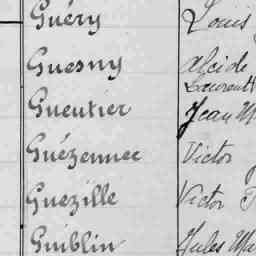 Guéry Louis
Guesny Alcide
Laurent
Gueutier Jean M
Guézennec Victor
Guezille Victor
Guiblin Jules